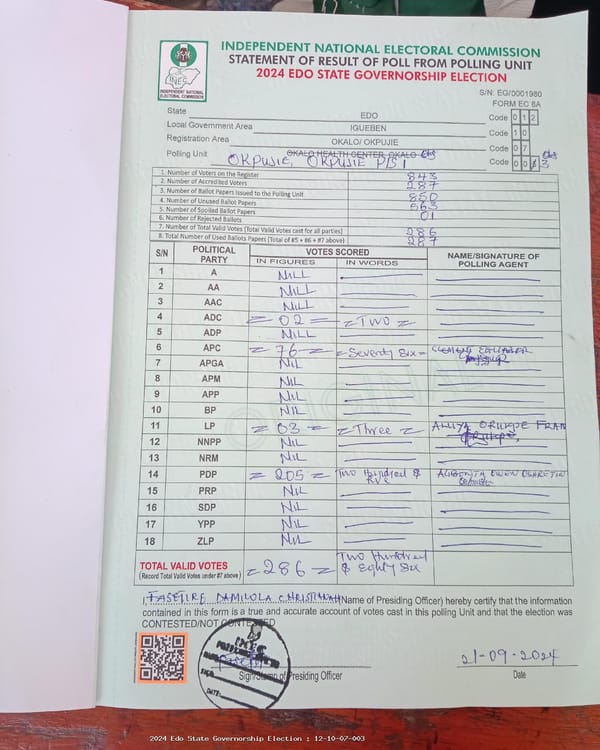 INDEPENDENT NATIONAL ELECTORAL COMMISSION
STATEMENT OF RESULT OF POLL FROM POLLING UNIT
2024 EDO STATE GOVERNORSHIP ELECTION
INEC
INDEPENDENT NATIONAL ELECTORAL COMMISSION
S/N: EG/0001980
FORM EC 8A
State EDO Code 0 1 2
Local Government Area IGUEBEN Code 1 0
Registration Area OKALO/ OKPUJIE Code 0 7
Polling Unit OKALO HEALTH CENTER, OKALO Code 0 0 3
OKPUJIE, OKPUJIE PS 1
1. Number of Voters on the Register 843
2. Number of Accredited Voters 287
3. Number of Ballot Papers Issued to the Polling Unit 850
4. Number of Unused Ballot Papers 563
5. Number of Spoiled Ballot Papers 01
6. Number of Rejected Ballots
7. Number of Total Valid Votes (Total Valid Votes cast for all parties) 286
8. Total Number of Used Ballots Papers (Total of #5 + #6 + #7 above) 287
S/N POLITICAL PARTY VOTES SCORED NAME/SIGNATURE OF POLLING AGENT
IN FIGURES IN WORDS
1 A NILL
2 AA NILL
3 AAC NILL
4 ADC = 02 = = TWO =
5 ADP NILL
6 APC = 76 = = Seventy Six = CLEMENT
7 APGA NIL
8 APM NIL
9 APP NIL
10 BP NIL
11 LP = 03 = = Three =
12 NNPP NIL
13 NRM NIL
14 PDP = 205 = Two Hundred & Five
15 PRP NIL
16 SDP NIL
17 YPP NIL
18 ZLP NIL
TOTAL VALID VOTES = 286 = Two Hundred & Eighty Six
(Record Total Valid Votes under #7 above)
I, FASETIRE DAMILOLA CHRISTIANAH (Name of Presiding Officer) hereby certify that the information
contained in this form is a true and accurate account of votes cast in this polling Unit and that the election was
CONTESTED/NOT CONTESTED
INEC
DATE:
Sign/Stamp of Presiding Officer
21-09-2024
Date
2024 Edo State Governorship Election : 12-10-07-003